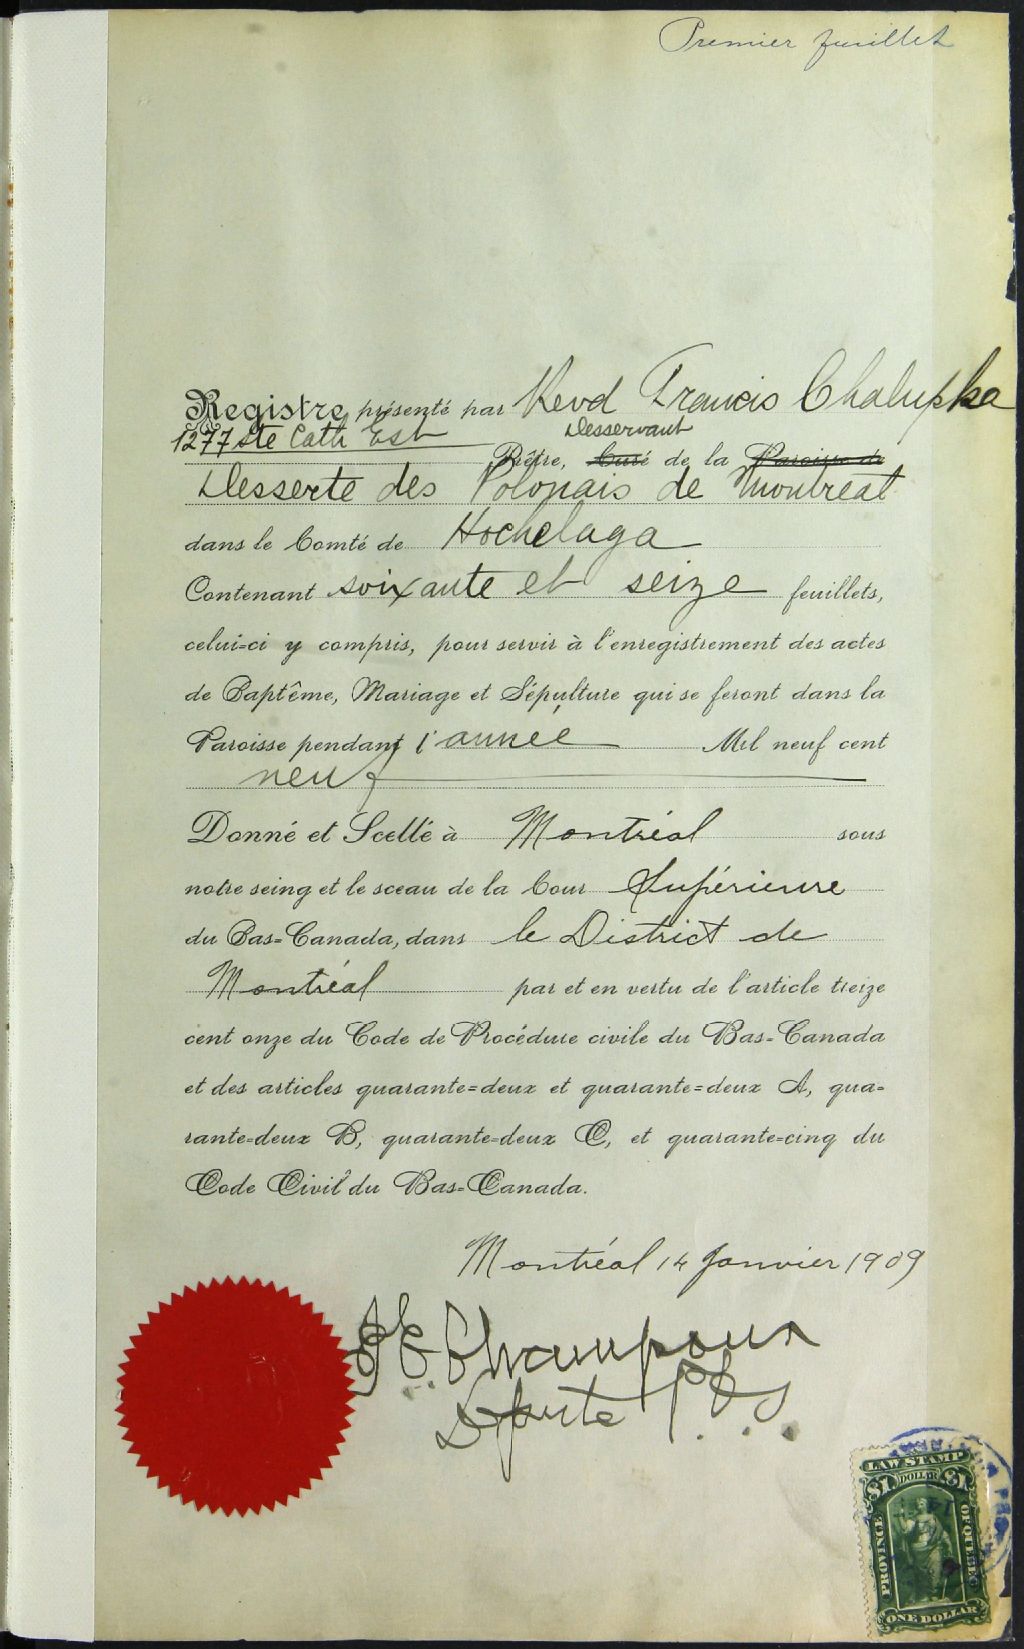 Premier feuillet
Registre présenté par Revd Francis Chalupka
1277 Ste Cath Est
Desservant
Prêtre, Curé de la Paroisse de
Desserte des Polonais de Montréal
dans le Comté de Hochelaga
Contenant soixante et seize feuillets,
celui-ci y compris, pour servir à l'enregistrement des actes
de Baptême, Mariage et Sépulture qui se feront dans la
Paroisse pendant l'année Mil neuf cent
neuf
Donné et Scellé à Montréal sous
notre seing et le sceau de la Cour Supérieure
du Bas-Canada, dans le District de
Montréal par et en vertu de l'article treize
cent onze du Code de Procédure civile du Bas-Canada
et des articles quarante-deux et quarante-deux A, qua-
rante-deux B, quarante-deux C, et quarante-cinq du
Code Civil du Bas-Canada.
Montréal 14 Janvier 1909
Champoux
Députe P.C.S.
LAW STAMP
$1 DOLLAR $1
PROVINCE OF QUEBEC
ONE DOLLAR